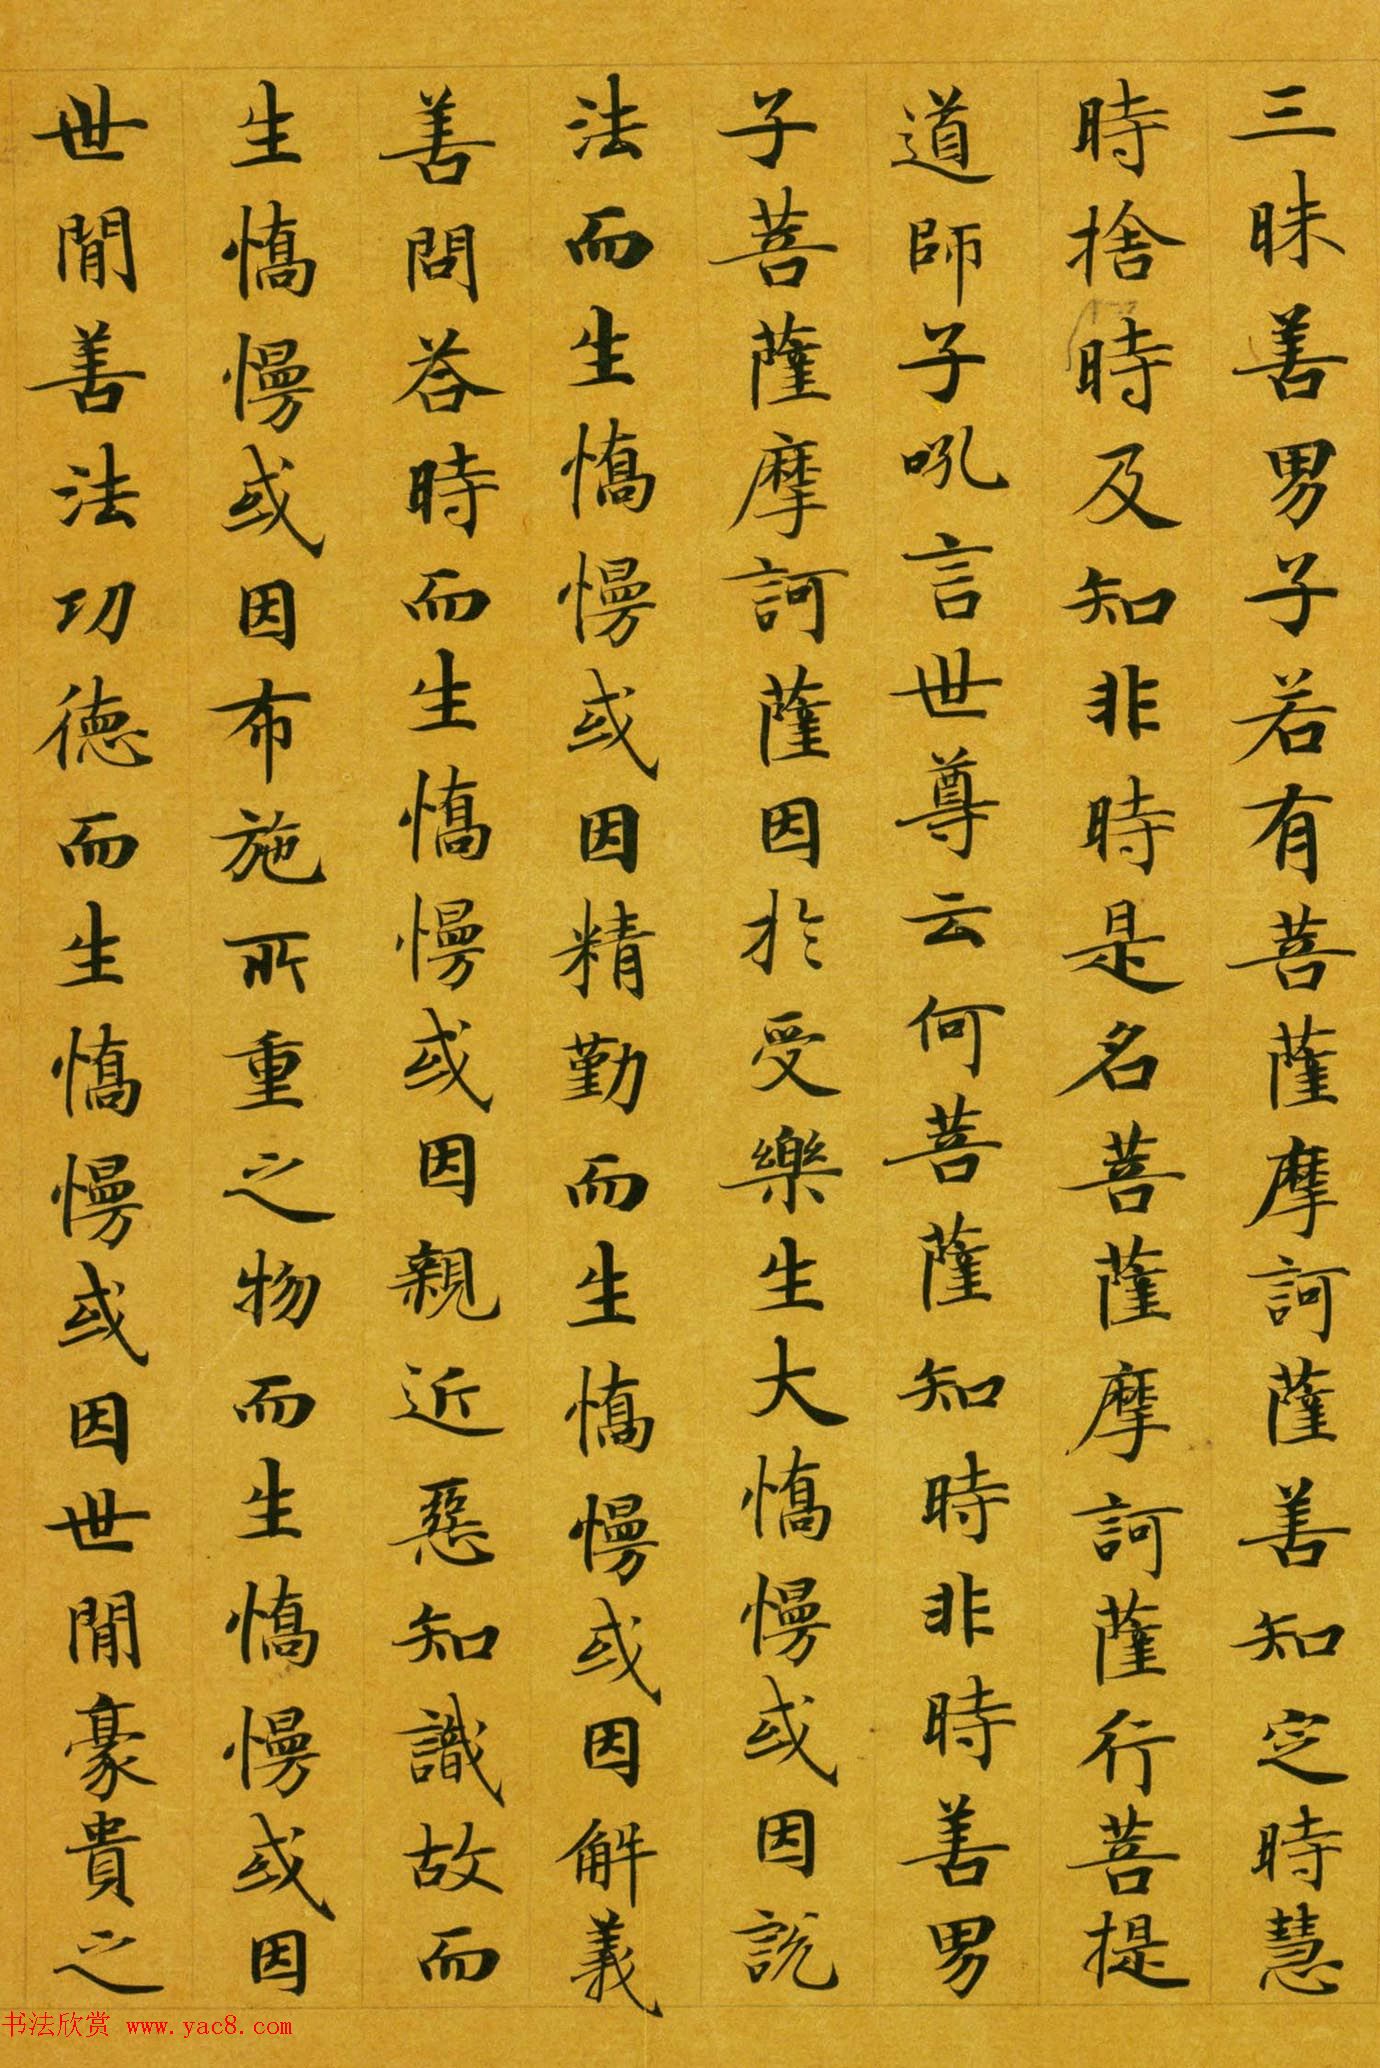 三昧善男子若有菩薩摩訶薩善知定時慧
時捨時及知非時是名菩薩摩訶薩行菩提
道師子吼言世尊云何菩薩知時非時善男
子菩薩摩訶薩因於受樂生大憍慢或因說
法而生憍慢或因精勤而生憍慢或因解義
善問答時而生憍慢或因親近惡知識故而
生憍慢或因布施所重之物而生憍慢或因
世間善法功德而生憍慢或因世間豪貴之
书法欣赏 www.yac8.com